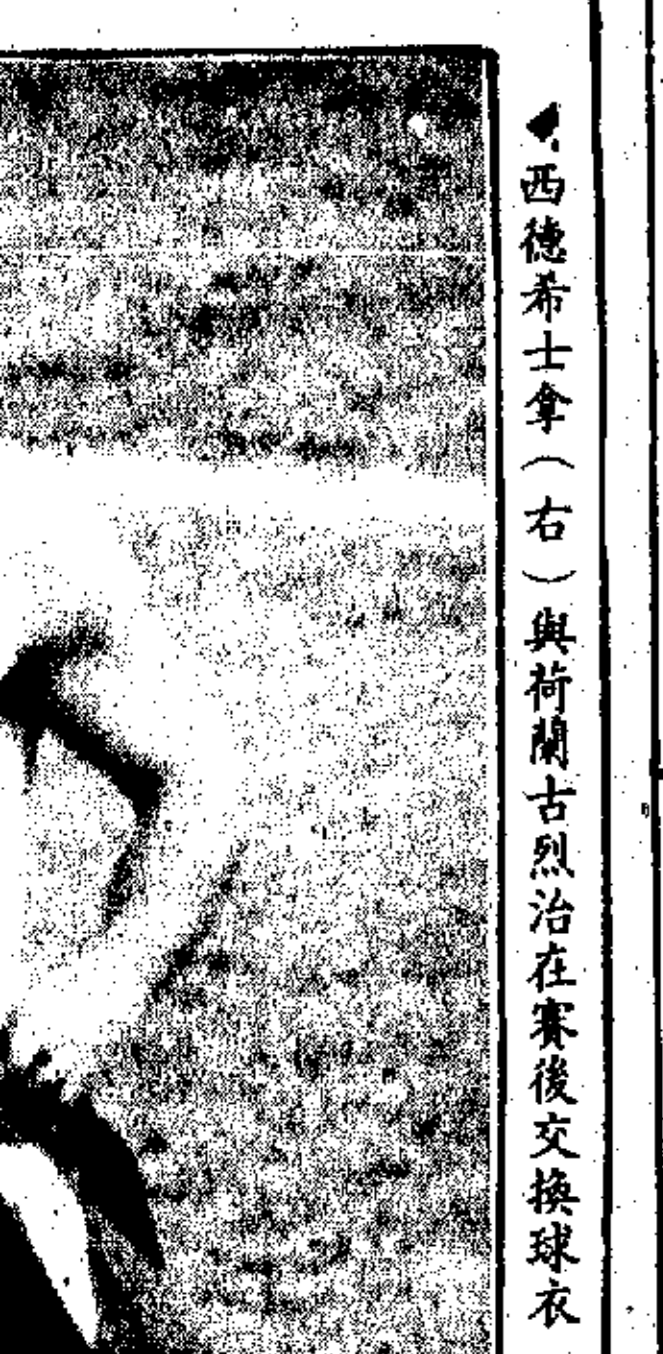 西德希士拿（右）與荷蘭古烈治在賽後交換球衣